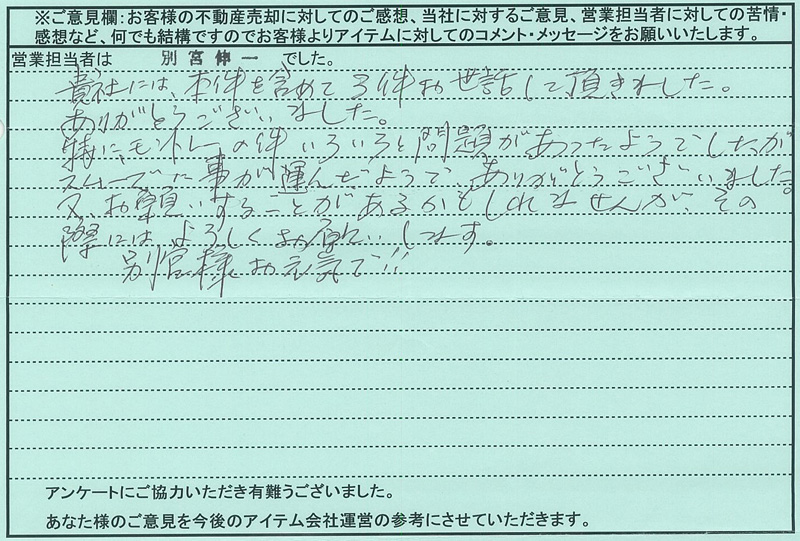 ※ご意見欄:お客様の不動産売却に対してのご感想、当社に対するご意見、営業担当者に対しての苦情・
感想など、何でも結構ですのでお客様よりアイテムに対してのコメント・メッセージをお願いいたします。
営業担当者は 別宮伸一 でした。
貴社には、本件を含めて3件お世話して頂きました。
ありがとうございました。
特に、モントレーの件いろいろと問題があったようでしたが
スムーズに事が運んだようで、ありがとうございました。
又、お願いすることがあるかもしれませんが、その
際にはよろしくお願いします。
別宮様お元気で!!
アンケートにご協力いただき有難うございました。
あなた様のご意見を今後のアイテム会社運営の参考にさせていただきます。